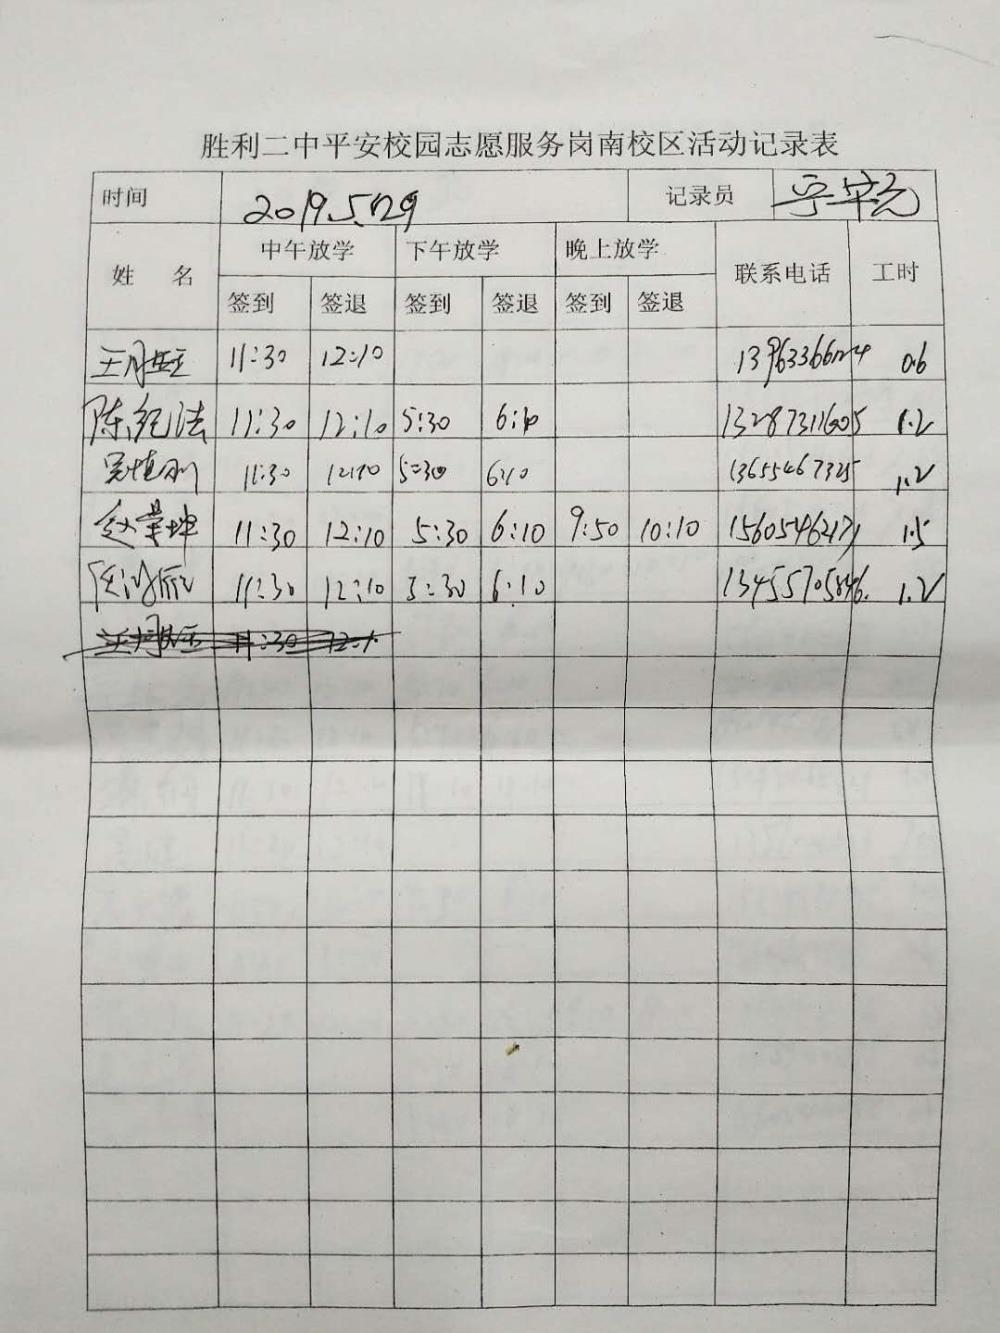 胜利二中平安校园志愿服务岗南校区活动记录表
时间 2019.5.29 记录员
姓 名 中午放学 下午放学 晚上放学 联系电话 工时
签到 签退 签到 签退 签到 签退
11:30 12:10 0.6
陈纪法 11:30 12:10 5:30 6:10 13287311605 1.2
11:30 12:10 5:30 6:10 13655467325 1.2
赵荣坤 11:30 12:10 5:30 6:10 9:50 10:10 1.5
11:30 12:10 5:30 6:10 1.2
11:30